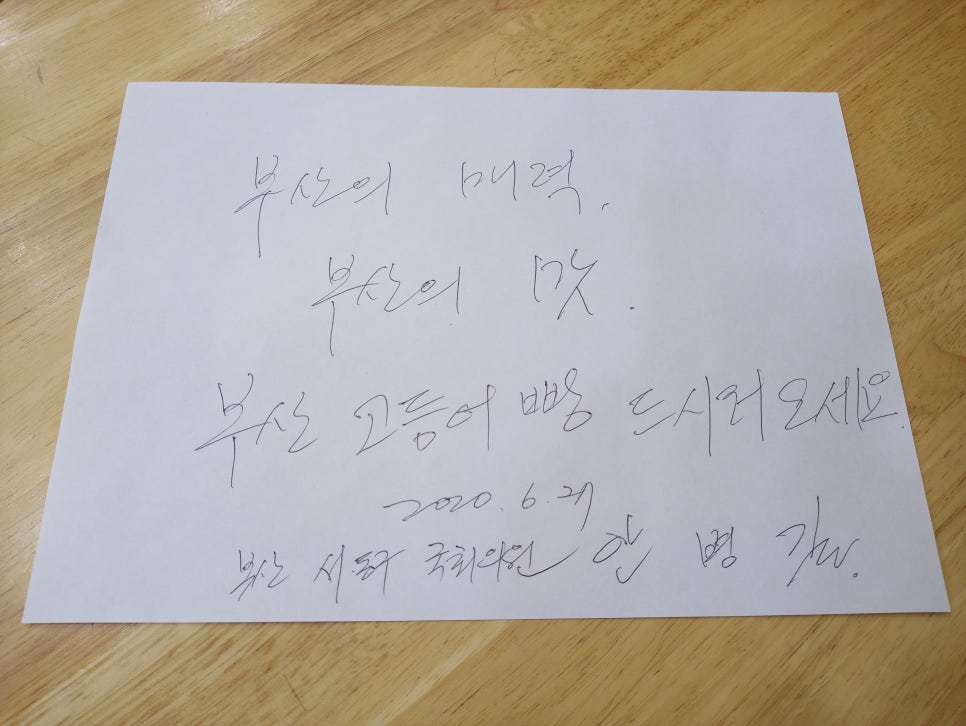 부산의 매력.
부산의 맛.
부산 고등어 빵 드시러 오세요.
2020. 6. 27
부산 서동구 국회의원 안 병 길.